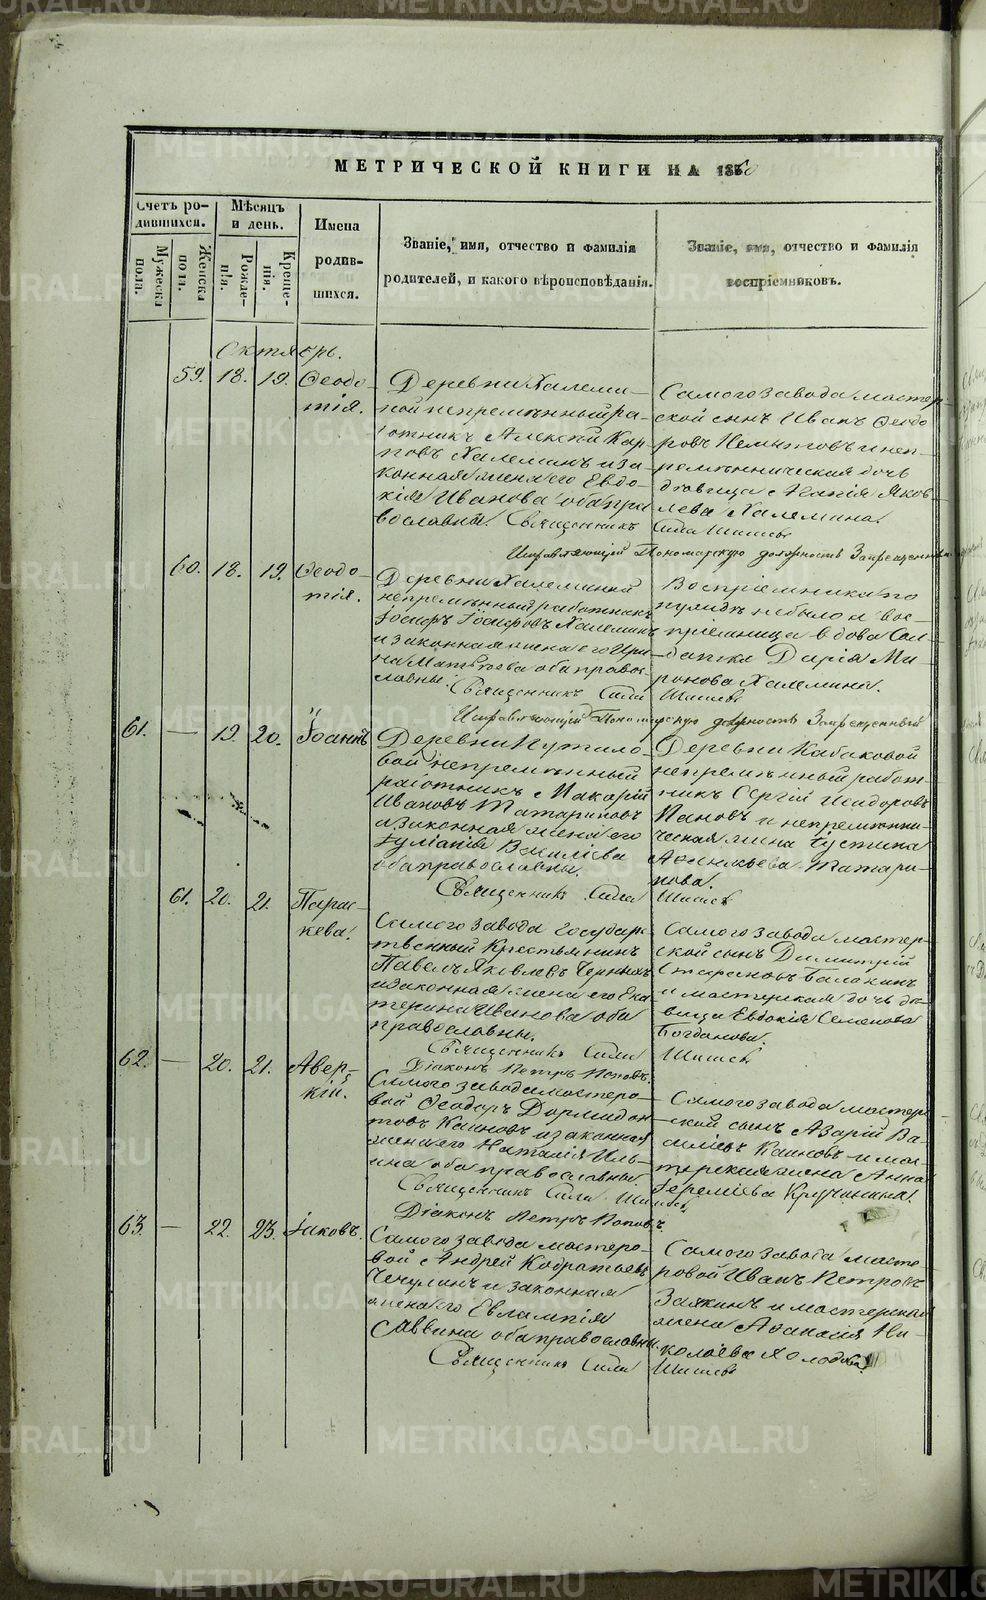 МЕТРИЧЕСКОЙ КНИГИ НА 1860
Счетъ ро-
дившихся.
Мужеска
пола.
Женска
пола.
Мѣсяцъ
и день.
Рожде-
нія.
Креще-
нія.
Имена
родив-
шихся.
Званіе, имя, отчество и фамилія
родителей, и какого вѣроисповѣданія.
Званіе, имя, отчество и фамилія
воспріемниковъ.
Октябрь.
59. 18. 19. Ѳеодо-
тія.
Деревни Халеми-
ной непремѣнный ра-
ботникъ Алексѣй Кар-
повъ Халеминъ и за-
конная жена его Евдо-
кія Иванова оба пра
вославны.
Самого завода мастер-
ской сынъ Иванъ Ѳеодо
ровъ и неп-
ремѣнническая дочь
дѣвица Яков-
лева Халемина.
Священникъ Сила Шишевъ
Исправляющій Пономарскую должность
60. 18. 19. Ѳеодо-
тія.
Деревни Халеминой
непремѣнный работникъ
Іосифъ Іосифовъ Халеминъ
и законная жена его Ири-
на Матвѣева оба правос-
лавны.
Воспріемника по
нуждѣ небыло а вос-
пріемница вдова Сол-
датка Дарія Ми-
ронова Халемина.
Священникъ Сила Шишевъ
Исправляющій Пономарскую должность
61. — 19. 20. Іоаннъ
Деревни Путило-
вой непремѣнный
работникъ Макарій
Ивановъ Татариновъ
и законная жена его
Іуліанія Василіева
оба православны.
Деревни Кабаковой
непремѣнный работ-
никъ Сергій Исидоровъ
Пановъ и непремѣнни-
ческая жена Іустина
Татари-
нова.
Священникъ Сила Шишевъ
61. 20. 21. Парас-
кева.
Самого завода Государ-
ственный Крестьянинъ
Павелъ Яковлевъ Черныхъ
и законная жена его Ека
терина Иванова оба
православны.
Самого завода мастер-
ской сынъ Димитрій
Стефановъ Балакинъ
и мастерская дочь дѣ-
вица Евдокія Семенова
Богданова.
Священникъ Сила Шишевъ
Діаконъ Петръ Поповъ.
62. — 20. 21. Авер-
кій.
Самого завода мастеро-
вой Ѳеодоръ Дормидон
товъ Каиновъ и законная
жена его Наталія Иль-
ина оба православны.
Самого завода мастер
ской сынъ Азарій Ва-
силіевъ Каиновъ и мас-
терская жена Анна
Іереміева Кручинина
Священникъ Сила Шишевъ
Діаконъ Петръ Поповъ.
63. — 22. 23. Іаковъ.
Самого завода мастеро-
вой Андрей Кодратьевъ
Чечулинъ и законная
жена его Евлампія
Саввина оба православны.
Самого завода масте-
ровой Иванъ Петровъ
и мастерская
жена Аѳанасія Ни-
колаева
Священникъ Сила Шишевъ
METRIKI.GASO-URAL.RU